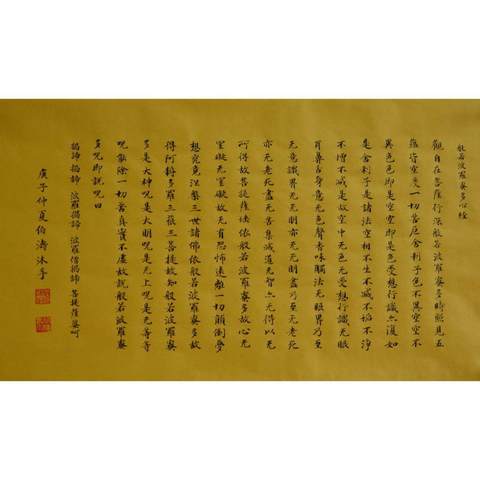 般若波羅蜜多心經
觀自在菩薩行深般若波羅蜜多時照見五
蘊皆空度一切苦厄舍利子色不異空空不
異色色即是空空即是色受想行識亦復如
是舍利子是諸法空相不生不滅不垢不淨
不增不減是故空中无色无受想行識无眼
耳鼻舌身意无色聲香味觸法无眼界乃至
无意識界无无明亦无无明盡乃至无老死
亦无老死盡无苦集滅道无智亦无得以无
所得故菩提薩埵依般若波羅蜜多故心无
罣礙无罣礙故无有恐怖遠離一切顛倒夢
想究竟涅槃三世諸佛依般若波羅蜜多故
得阿耨多羅三藐三菩提故知般若波羅蜜
多是大神呪是大明呪是无上呪是无等等
呪能除一切苦真實不虛故說般若波羅蜜
多呪即說呪曰
揭諦 揭諦 波羅揭諦 波羅僧揭諦 菩提薩婆訶
庚子仲夏伯濤沐手